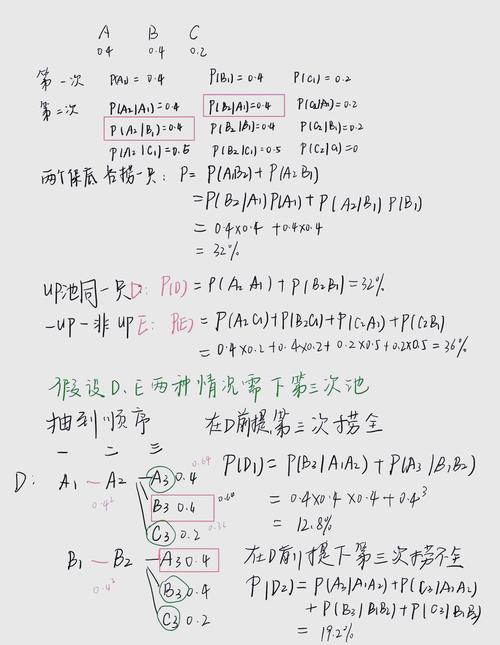 A B C
0.4 0.4 0.2
第一次 P(A1)=0.4 P(B1)=0.4 P(C1)=0.2
第二次 P(A2|A1)=0.4 P(B2|A1)=0.4 P(C2|A1)=0.2
P(A2|B1)=0.4 P(B2|B1)=0.4 P(C2|B1)=0.2
P(A2|C1)=0.5 P(B2|C1)=0.5 P(C2|C1)=0
两个保底各捞一只: P= P(A1B2)+P(A2B1)
=P(B2|A1)P(A1)+P(A2|B1)P(B1)
= 0.4×0.4 +0.4×0.4
= 32%
UP池同一只D: P(D) = P(A2A1)+P(B2B1)=32%
一UP一非UP E: P(E) = P(A2C1)+P(B2C1)+P(C2A1)+P(C2B1)
= 0.4×0.2+0.4×0.2+0.2×0.5+0.2×0.5=36%
假设D、E两种情况需下第三次池
抽到顺序 在D前提,第三次捞全
一 二 三
D: A1 — A2 — A3 0.4 0.64
0.4² B3 0.4
C3 0.2 0.36
P(D1) = P(B3|A1A2)+P(A3|B1B2)
= 0.4×0.4×0.4+0.4³
= 12.8%
B1 — B2 — A3 0.4
0.4² B3 0.4
C3 0.2
在D前提下第三次捞不全
P(D2) = P(A3|A1A2)+P(C3|A1A2)
+ P(B3|B1B2)+P(C3|B1B2)
= 19.2%